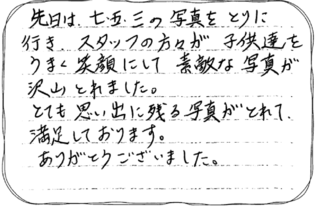 先日は、七五、三の写真をとりに
行き、スタッフの方々が子供達を
うまく笑顔にして素敵な写真が
沢山とれました。
とても思い出に残る写真がとれて、
満足しております。
ありがとうございました。